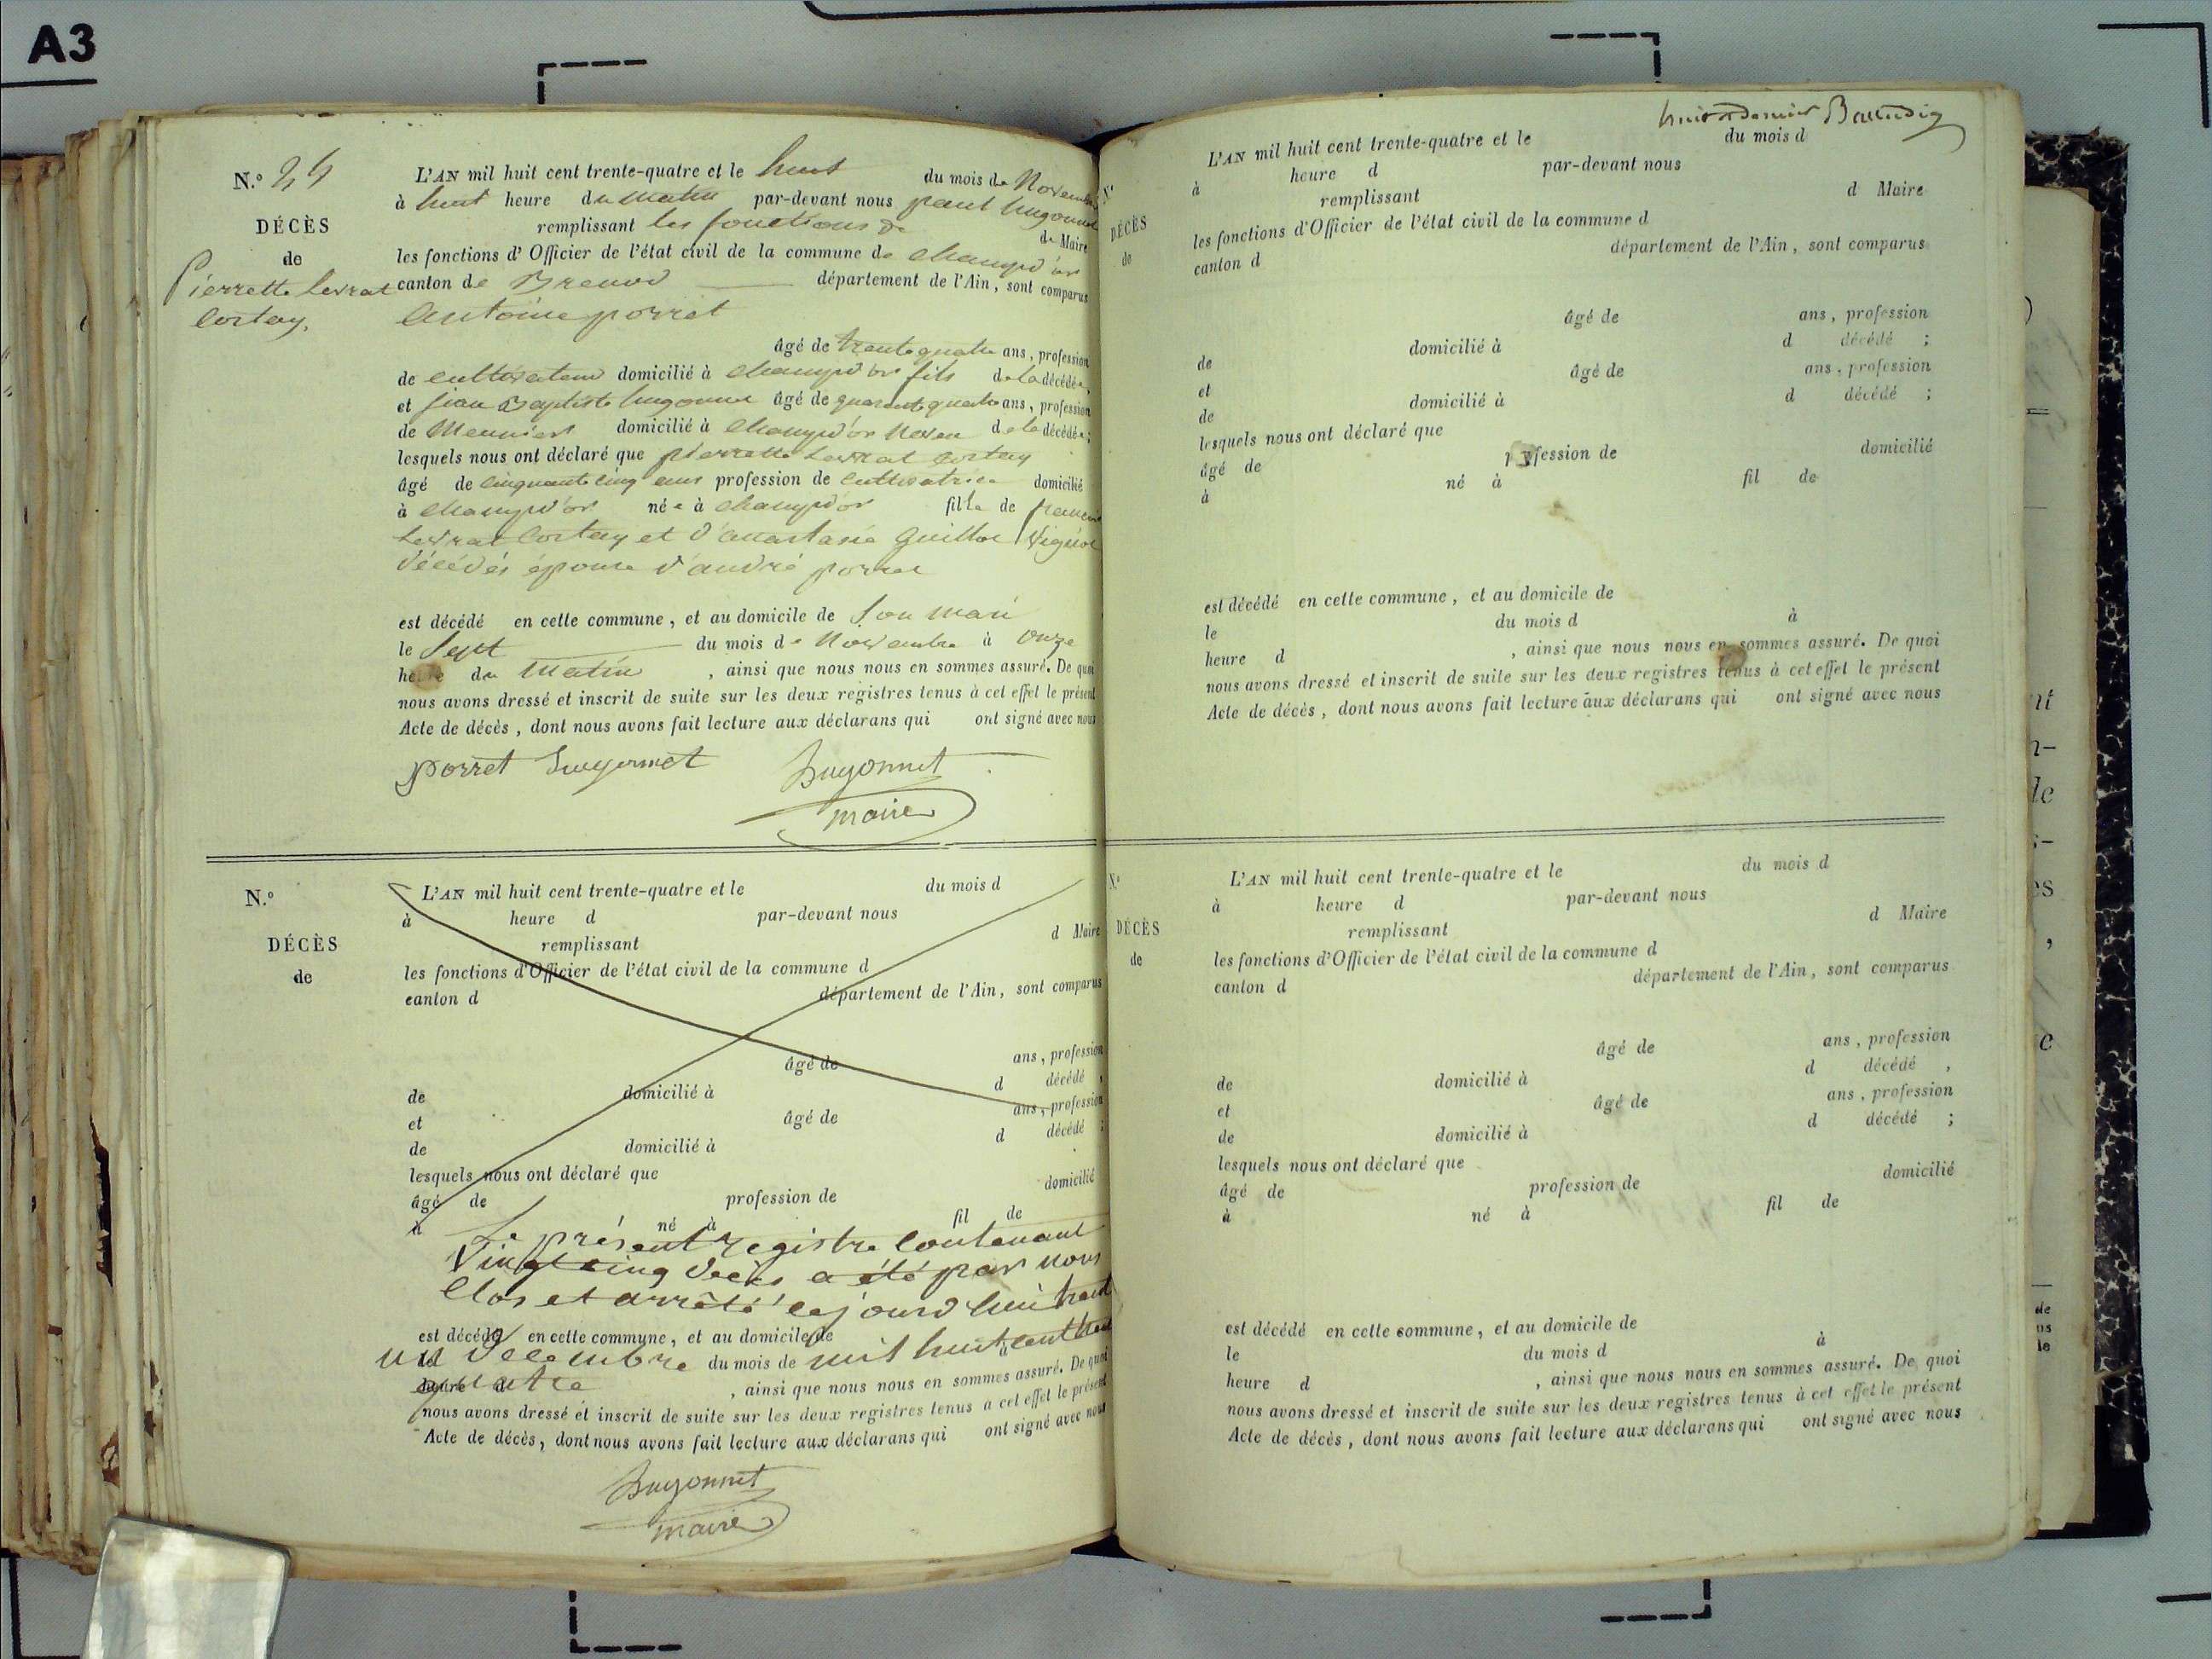 A3
N.° 25
DÉCÈS
de
Pierrette levrat
Cortay.
L'AN mil huit cent trente-quatre et le huit du mois de Novembre
à huit heure du matin par-devant nous paul hugonnet
remplissant les fonctions de de Maire
les fonctions d'Officier de l'état civil de la commune de Champd'or
canton de Brenod département de l'Ain, sont comparus
Antoine porret
âgé de trente quatre ans, profession
de cultivateur domicilié à Champd'or fils de la décédée,
et jean Baptiste hugonnet âgé de quarante quatre ans, profession
de Meunier domicilié à Champd'or Neveu de la décédée;
lesquels nous ont déclaré que pierrette Levrat Cortay
âgé de cinquante cinq ans profession de Cultivatrice domicilié
à Champd'or née à Champd'or fille de françois
Levrat Cortay et d'anastasie Guillot
décédés épouse d'andré porret
est décédé en cette commune, et au domicile de Son mari
le Sept du mois de Novembre à onze
heure du Matin, ainsi que nous nous en sommes assuré. De quoi
nous avons dressé et inscrit de suite sur les deux registres tenus à cet effet le présent
Acte de décès, dont nous avons fait lecture aux déclarans qui ont signé avec nous
porret hugonnet hugonnet
maire
N.°
DÉCÈS
de
L'AN mil huit cent trente-quatre et le du mois d
à heure d par-devant nous
remplissant d Maire
les fonctions d'Officier de l'état civil de la commune d
canton d département de l'Ain, sont comparus
âgé de ans, profession
de domicilié à d décédé,
et âgé de ans, profession
de domicilié à d décédé;
lesquels nous ont déclaré que
âgé de profession de domicilié
à né à fil de
Le présent registre Contenant
Vingt cinq décès a été par nous
Clos et arrêté cejourd'hui trent
est décédé en cette commune, et au domicile de
un Décembre du mois de mil huit cent trent
quatre
heure d, ainsi que nous nous en sommes assuré. De quoi
nous avons dressé et inscrit de suite sur les deux registres tenus à cet effet le présent
Acte de décès, dont nous avons fait lecture aux déclarans qui ont signé avec nous
hugonnet
maire
L'AN mil huit cent trente-quatre et le du mois d
à heure d par-devant nous
remplissant d Maire
N.°
DÉCÈS
de
les fonctions d'Officier de l'état civil de la commune d
canton d département de l'Ain, sont comparus
âgé de ans, profession
de domicilié à d décédé;
et âgé de ans, profession
de domicilié à d décédé;
lesquels nous ont déclaré que
âgé de profession de domicilié
à né à fil de
est décédé en cette commune, et au domicile de
le du mois d à
heure d, ainsi que nous nous en sommes assuré. De quoi
nous avons dressé et inscrit de suite sur les deux registres tenus à cet effet le présent
Acte de décès, dont nous avons fait lecture aux déclarans qui ont signé avec nous
N.°
DÉCÈS
de
L'AN mil huit cent trente-quatre et le du mois d
à heure d par-devant nous
remplissant d Maire
les fonctions d'Officier de l'état civil de la commune d
canton d département de l'Ain, sont comparus
âgé de ans, profession
de domicilié à d décédé,
et âgé de ans, profession
de domicilié à d décédé;
lesquels nous ont déclaré que
âgé de profession de domicilié
à né à fil de
est décédé en cette commune, et au domicile de
le du mois d à
heure d, ainsi que nous nous en sommes assuré. De quoi
nous avons dressé et inscrit de suite sur les deux registres tenus à cet effet le présent
Acte de décès, dont nous avons fait lecture aux déclarans qui ont signé avec nous